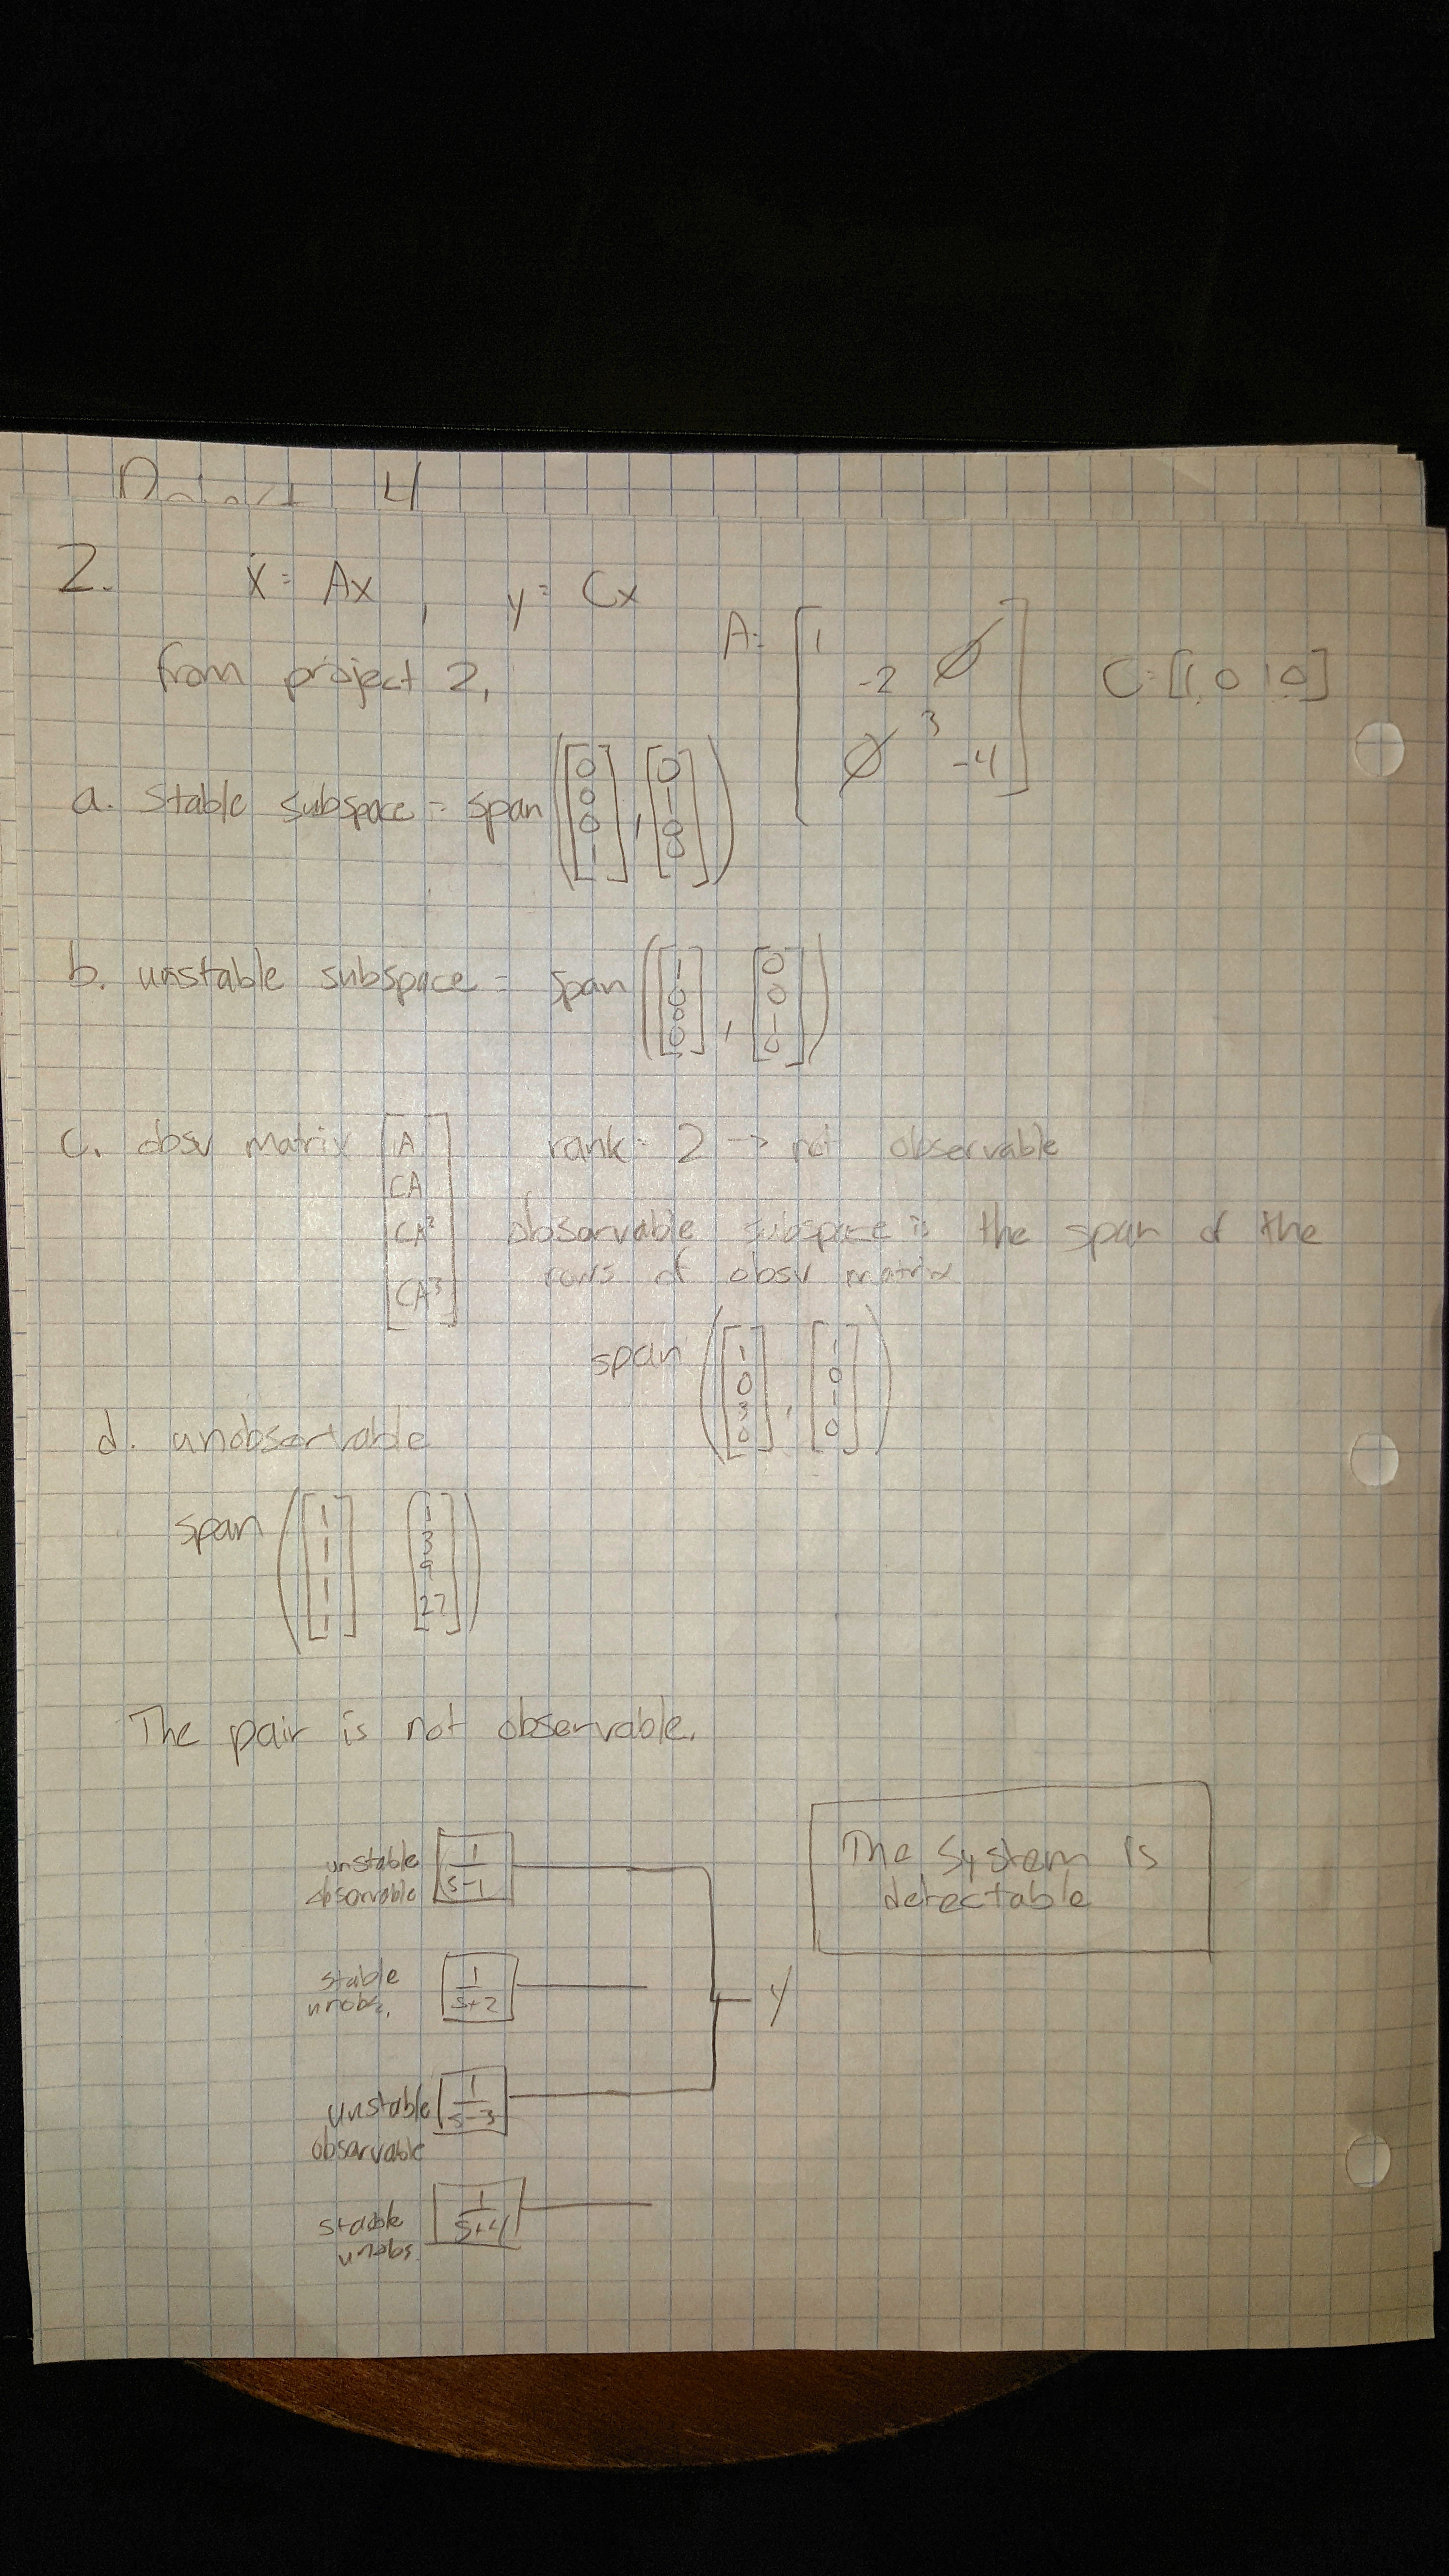 4
2. ẋ = Ax , y = Cx A = [1 -2 3 -4] C = [1 0 1 0]
from project 2,
a. stable subspace = span ([0 0 0 1], [0 1 0 0])
b. unstable subspace = span ([1 0 0 0], [0 0 1 0])
c. obsv matrix [A CA CA² CA³] rank = 2 → not observable
observable subspace is the span of the
rows of obsv matrix
span ([1 0 3 0], [1 0 1 0])
d. unobsertvable
span ([1 1 1 1] [1 3 9 27])
The pair is not observable.
unstable observable [1/(s-1)]
stable unobs. [1/(s+2)]
unstable observable [1/(s-3)]
stable unobs. [1/(s+4)]
y
The System is
detectable